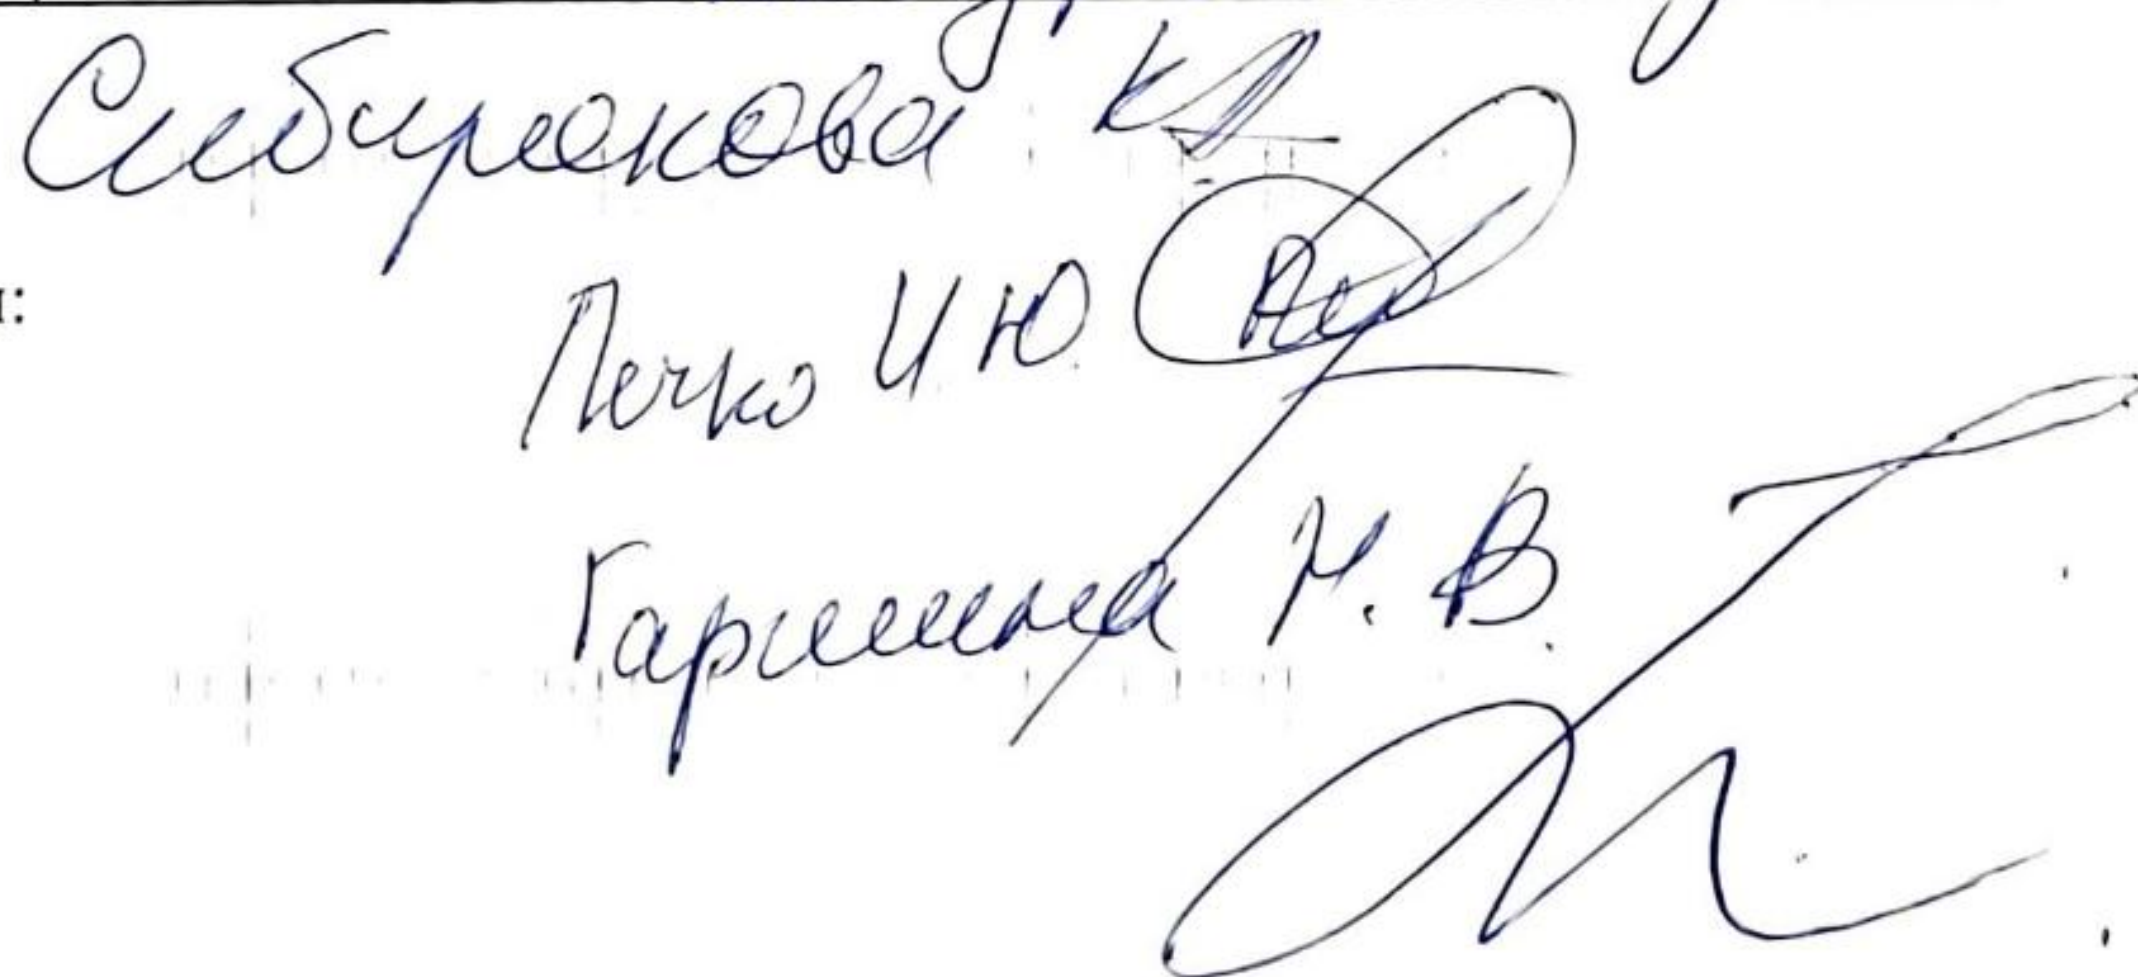 Сибирякова
Печко И.Ю.
Гаршина Н. В.